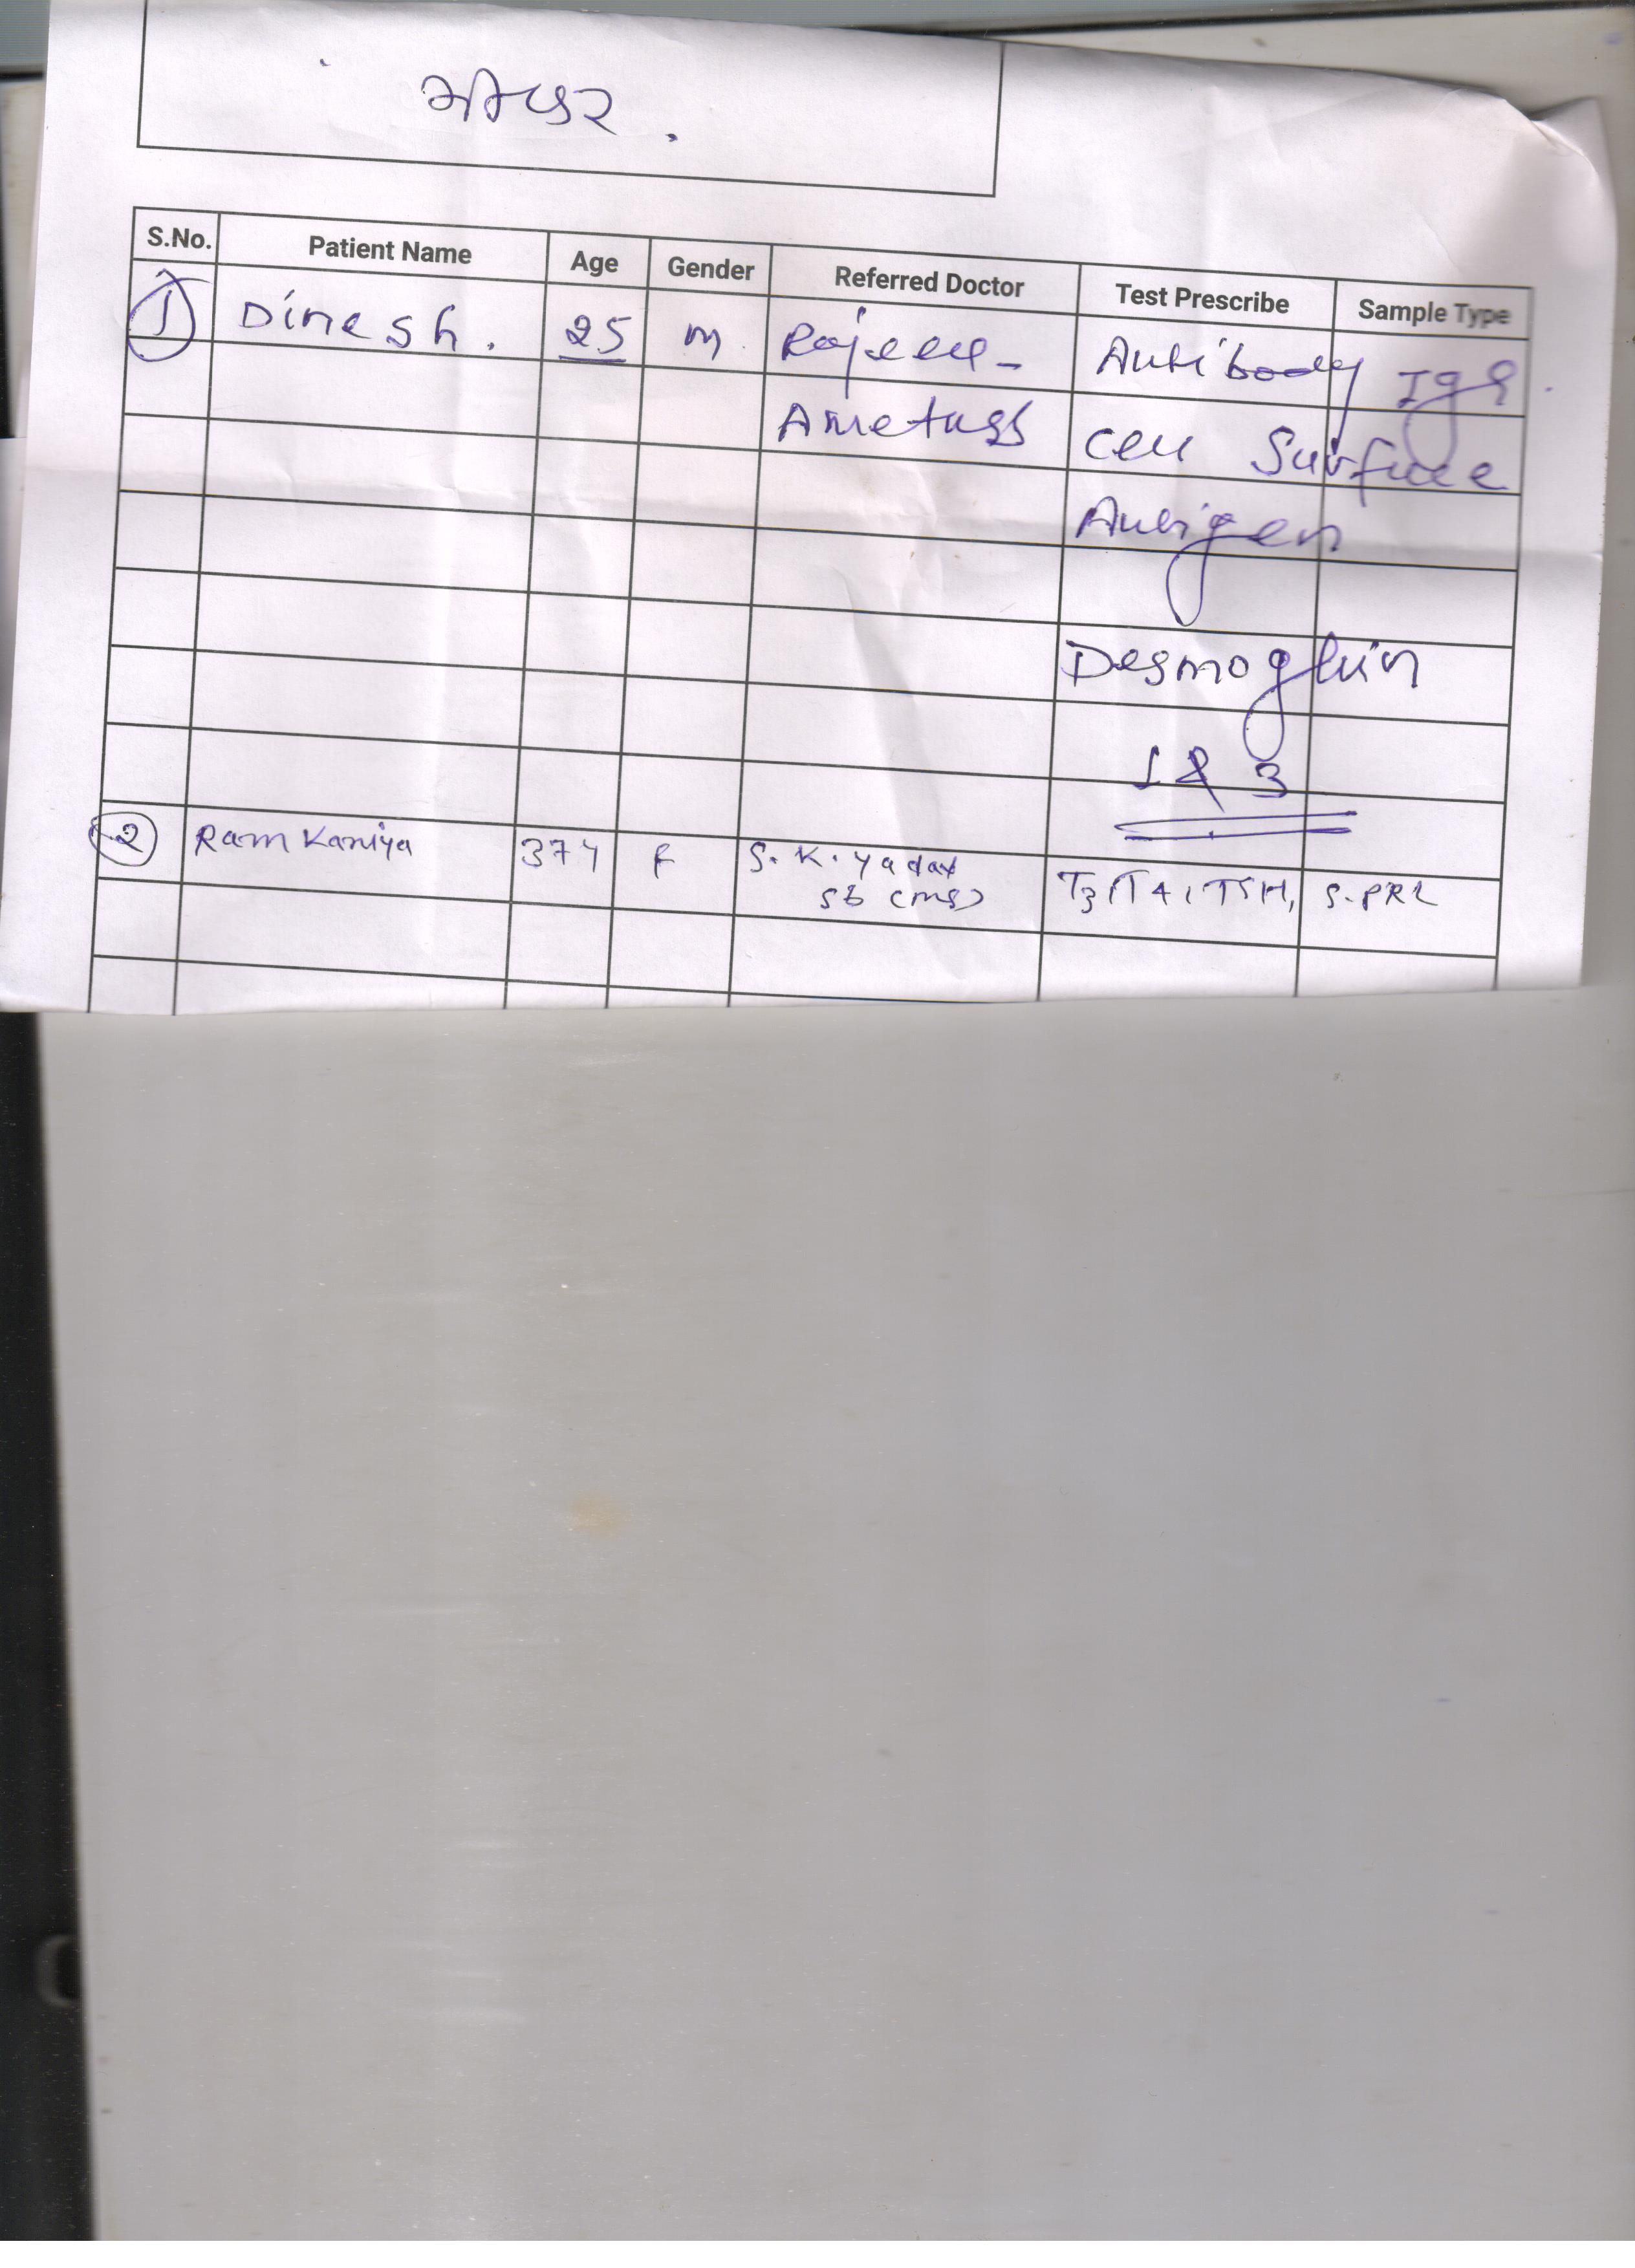 S.No. Patient Name Age Gender Referred Doctor Test Prescribe Sample Type
1 Dinesh. 25 m Rajeev- Antibody IgG
cell Surface
Antigen
Desmoglein
1 & 3
2 Ram Kaniya 37Y F S. K. Yadav T3, T4, TSH, S.PRL
sb (ms)